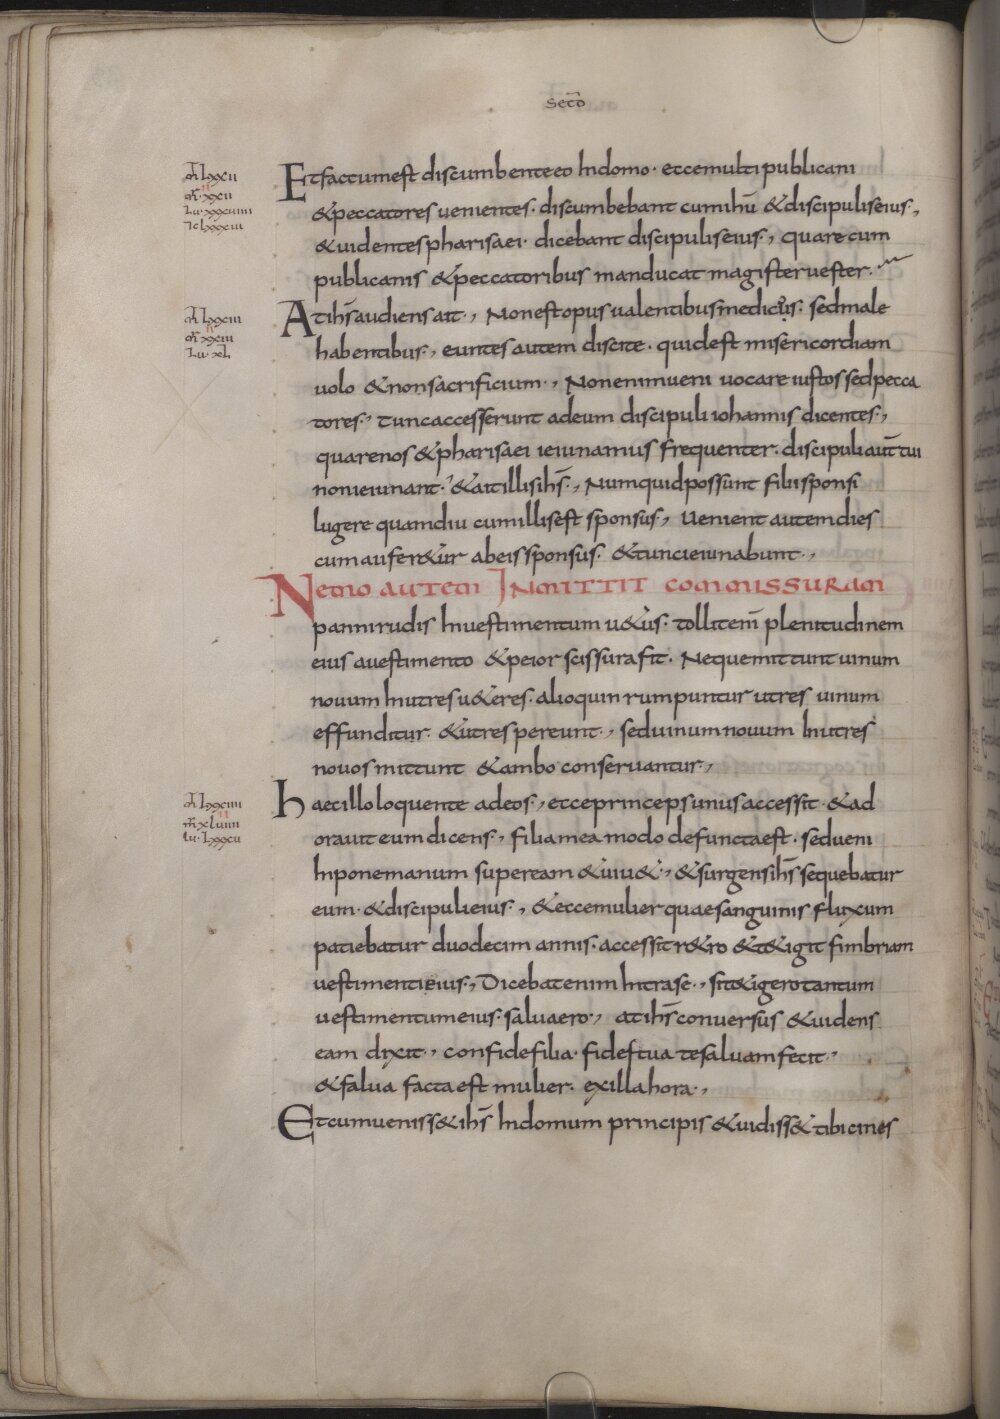 sec̄d
m̄ lxxii
mr̄ xxii
Lu xxxuiiii
Et factum est discumbente eo In domo · et ecce multi publicani
& peccatores uenientes · discumbebant cum ihū & discipulis eius ,
& uidentes pharisaei · dicebant discipulis eius · , quare cum
publicanis & peccatoribus manducat magister uester ·
m̄ lxxiii
mr̄ xxiii
Lu · xl
At ihs̄ audiens ait · , Non est opus ualentibus medicus · sed male
habentibus · , euntes autem discite · quid est misericordiam
uolo & non sacrificium · , Non enim ueni uocare iustos sed pecca
tores · , tunc accesserunt ad eum discipuli iohannis dicentes · ,
quare nos & pharisaei ieiunamus frequenter · discipuli aut̄ tui
non ieiunant · & ait illis ihs̄ · , Numquid possunt filii sponsi
lugere quamdiu cum illis est sponsus , Uenient autem dies
cum aufer&ur ab eis sponsus · & tunc ieiunabunt · ,
Nemo autem Inmittit commissuram
panni rudis In uestimentum u&us · tollit eni̅ plenitudinem
eius a uestimento & peior scissura fit · Neque mittunt uinum
nouum In utres u&eres · alioquin rumpuntur utres uinum
effunditur · & utres pereunt · , sed uinum nouum In utres
nouos mittunt & ambo conseruantur · ,
m̄ lxxiiii
mr̄ xluiiii
lu · lxxxu
haec illo loquente ad eos · , ecce princeps unus accessit · & ad
orauit eum dicens · , filia mea modo defuncta est · sed ueni
Inpone manum super eam & uiu& · , & surgens ihs̄ sequebatur
eum · & discipuli eius · , & ecce mulier quae sanguinis fluxum
patiebatur duodecim annis · accessit r&ro & t&igit fimbriam
uestimenti eius · , Dicebat enim Intra se · , si t&igero tantum
uestimentum eius · salua ero · , at ihs̄ conuersus & uidens
eam dixit · , confide filia · fides tua te saluam fecit · ,
& salua facta est mulier · ex illa hora · ,
Et cumueniss& ihs̄ In domum principis & uidiss& tibicines